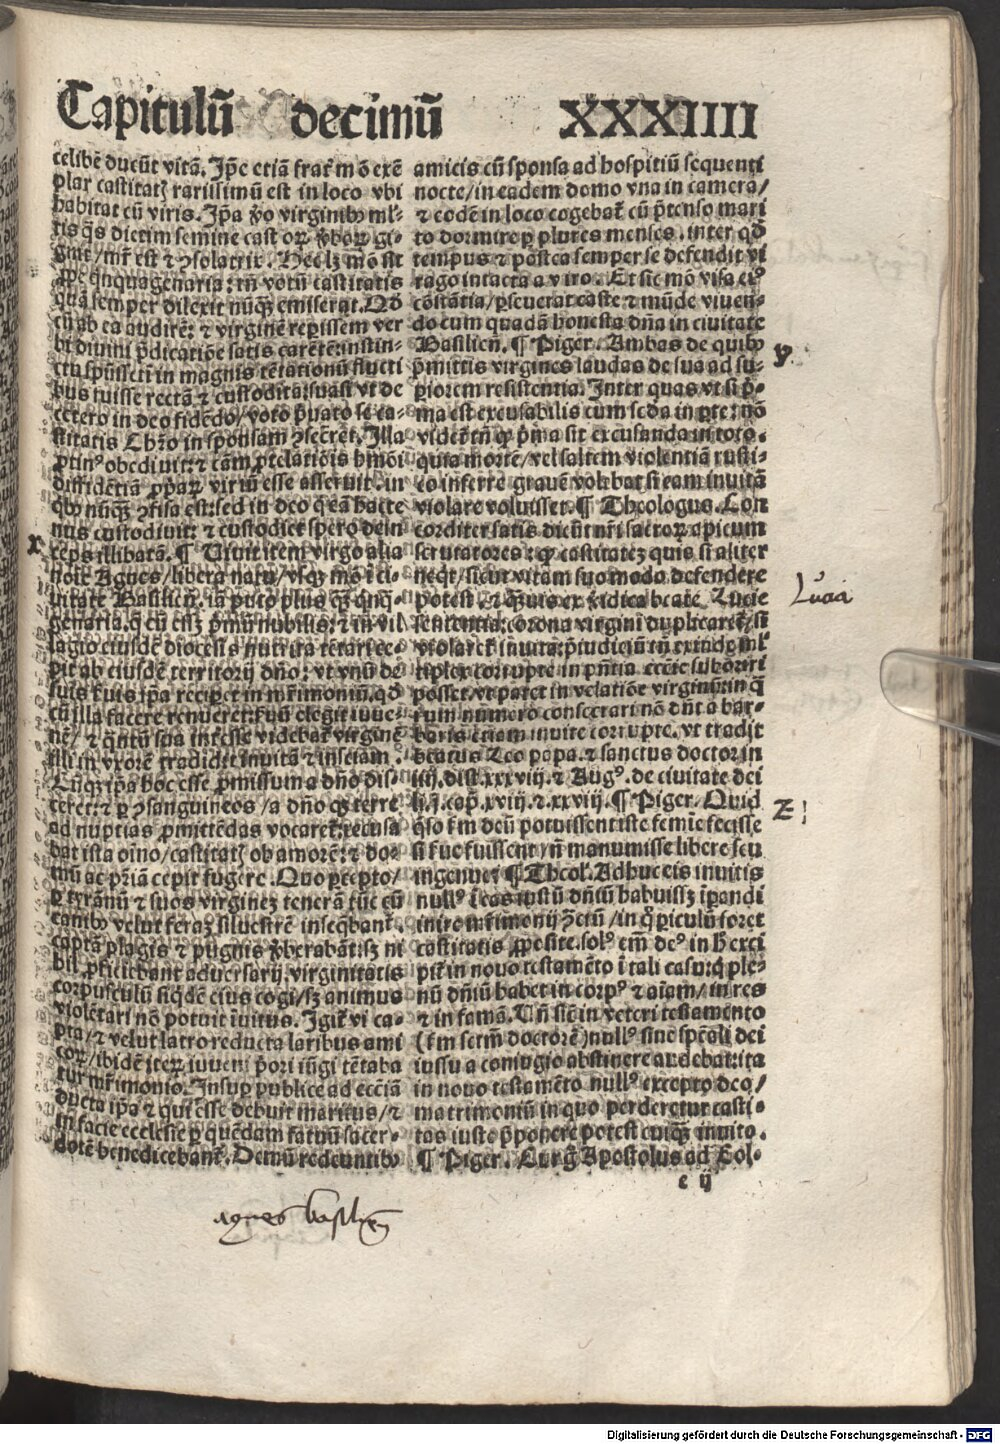 Capitulū decimū XXXIIII
celibē ducūt vitā. Ip̄e etiā frat᷑ m̄o exē
plar castitatꝫ rarissimū est in loco vbi
habitat cū viris. Ip̄a ꝟo virginibꝰ ml᷑
tis q̄s dictim semine cast oꝝ ꝟboꝝ gi-
gnit / mr̄ est ⁊ ꝯsolatrix. Hec lꝫ mō sit
ꝓpe q̄nquagenaria: tn̄ votū castitatis
quā semper dilexit nūqꝫ emiserat. Qd̄
cū ab ea audirē: ⁊ virginē reperissem ver
bi diuini p̄dicatiōe satis carētē: instin-
ctu spūssctī in magnis tētationū flucti
bus fuisse rectā ⁊ custoditā: suasi vt de
cetero in deo fidēdo / voto p̄uato se ca-
stitatis Chr̄o in sponsam ꝯsecrēt. Illa
ꝓtinꝰ obediuit: ⁊ cām ꝓtelatiōis hmōi
diffidētiā ꝓpaꝝ viriū esse asseruit. in
qbꝰ nūqꝫ ꝯfisa est: sed in deo q eā hacte
nus custodiuit: ⁊ custodiet spero dein
ceps illibatā. ¶ Viuit item virgo alia
noīe Agnes / libera natu / vsqꝫ mō ī ci-
uitate Basilieñ. iā puto plus qꝫ qnq-
genaria. q cū esset p̄mū nubilis: ⁊ in vil
lagio eiusdē diocesis nutrita tētari ce-
pit ab eiusdē territorij dn̄o: vt vnū de
suis ẜuis ip̄a reciperet in mr̄imoniū. qd̄
cū illa facere renueret: ẜuū elegit iuue-
nē / ⁊ q̄ntū sua int᷑esse videbat᷑ virginē
illi in vxorē tradidit inuitā ⁊ insciam.
Cūqꝫ ip̄a hoc esse ꝓmissum a dn̄o dis-
ceret: ⁊ ꝑ ꝯsanguineos / a dn̄o qꝫ terre
ad nuptias ꝓmittēdas vocaret᷑: recusa
bat ista oīno / castitatꝫ ob amorē: ⁊ do-
mū ac pr̄iam cepit fugere. Quo ꝑcepto /
ꝑ tyrānū ⁊ suos virginē tenerā tūc cū
canibꝰ velut ferā siluestrē inseqbant᷑.
captā plagis ⁊ pugnis ꝟberabāt: sꝫ ni
hil ꝓficiebant aduersarij. virginitatis
corpusculū siqdē eius cogi / sꝫ animus
violētari nō potuit īuitus. Igit᷑ vi ca-
pta / ⁊ velut latro reducta laribus ami
coꝝ / ibidē iteꝝ iuueni p̄ori iūgi tētaba
tur mr̄imonio. Insuꝑ publice ad ecc̄iā
ducta ip̄a ⁊ qui esse debuit maritus / ⁊
in facie ecclesie ꝑ quēdam fatuū sacer-
dotē benedicebant᷑. Demū redeuntibꝰ
agnes basilieñ
amicis cū sponsa ad hospitiū sequenti
nocte / in eadem domo vna in camera /
⁊ eodē in loco cogebat᷑ cū p̄tenso mari
to dormire ꝑ plures menses. inter qd̄
tempus ⁊ postea semper se defendit vi
rago intacta a viro. Et sic mō visa eiꝰ
cōstātia / ꝑseuerat caste ⁊ mūde viuen-
do cum quadā honesta dn̄a in ciuitate
Basilieñ. ¶ Piger. Ambas de quibꝰ
p̄mittis virgines laudas de sua ad su-
piorem resistentia. Inter quas vt si p̄-
ma est excusabilis cum scd̄a in pte: nō
videt᷑ tn̄ ꝙ p̄ma sit excusanda in toto.
quia mortē / vel saltem violentiā rusti-
co inferre grauē volebat si eam inuitā
violare voluisset. ¶ Theologus. Con
corditer satis dicūt nr̄i sacroꝝ apicum
scrutatores: ꝙ castitatē quis si aliter
neqt / sicut vitam suo modo defendere
potest. ⁊ q̄uis ex ꝟidica beate Lucie
sententia: corona virgini duplicaret᷑ / si
violaret᷑ inuita: p̄iudiciū tn̄ exinde ml᷑
tiplex corrupte in pn̄tia ecc̄ie suboriri
posset. vt patet in velatiōe virginū: in q̄
rum numero consecrari nō dn̄t a bar-
baris etiam inuite corrupte. vt tradit
beatus Leo papa. ⁊ sanctus doctor. in
iiij. dist. xxxviij. ⁊ Augꝰ. de ciuitate dei
li. j. cap. xviij. ⁊ xxviij. ¶ Piger. Quid
q̄so ẜm deū potuissent iste femīe fecisse
si ẜue fuissent / ⁊ n̄ manumisse libere seu
ingenue? ¶ Theol. Adhuc eis inuitis
nullꝰ ī eas iustū dn̄iū habuissꝫ īperandi
inire mr̄imonij ꝯtr̄ctū / in q̄ piculū foret
castitatis ꝓposite. solꝰ em̄ deꝰ in h̄ exci
pit᷑ in nouo testamēto ī tali casu: q ple-
nū dn̄iū habet in corpꝰ ⁊ aīam / in res
⁊ in famā. Vn̄ sic̄ in veteri testamento
(ẜm scrm̄ doctorē) nullꝰ sine spēali dei
iussu a coniugio abstinere audebat: ita
in nouo testamēto nullꝰ excepto deo /
matrimoniū in quo perderetur casti-
tas iuste p̄ponere potest cuiqꝫ inuito.
¶ Piger. Cur g̊ Apostolus ad Col-
e ij
x
y.
Lucia
z